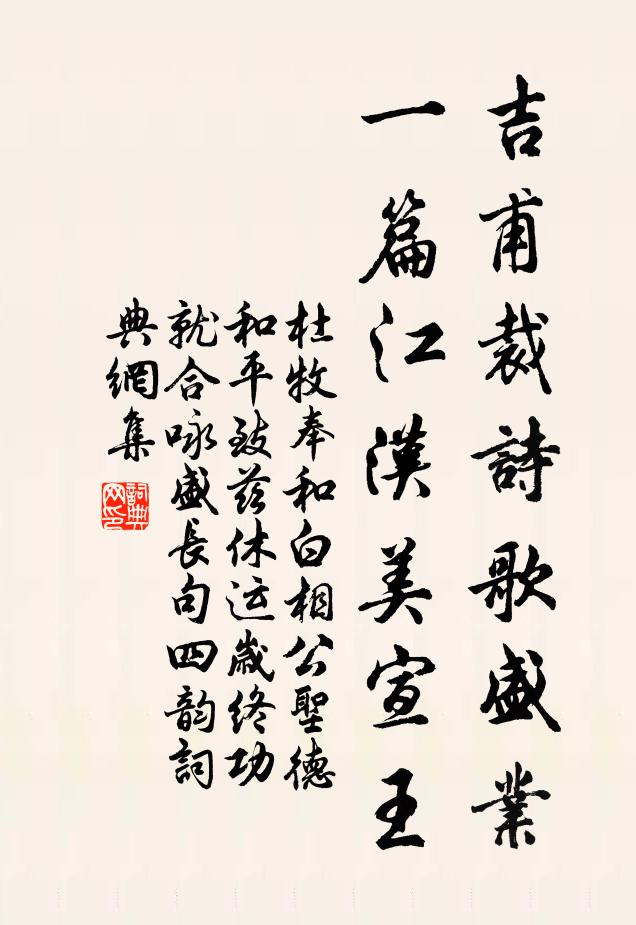 吉甫裁詩歌盛業
一篇江漢美宣王
杜牧奉和白相公聖德
和平致茲休运歲終功
就合咏盛長句四韵詞
典網集
詞典
网印